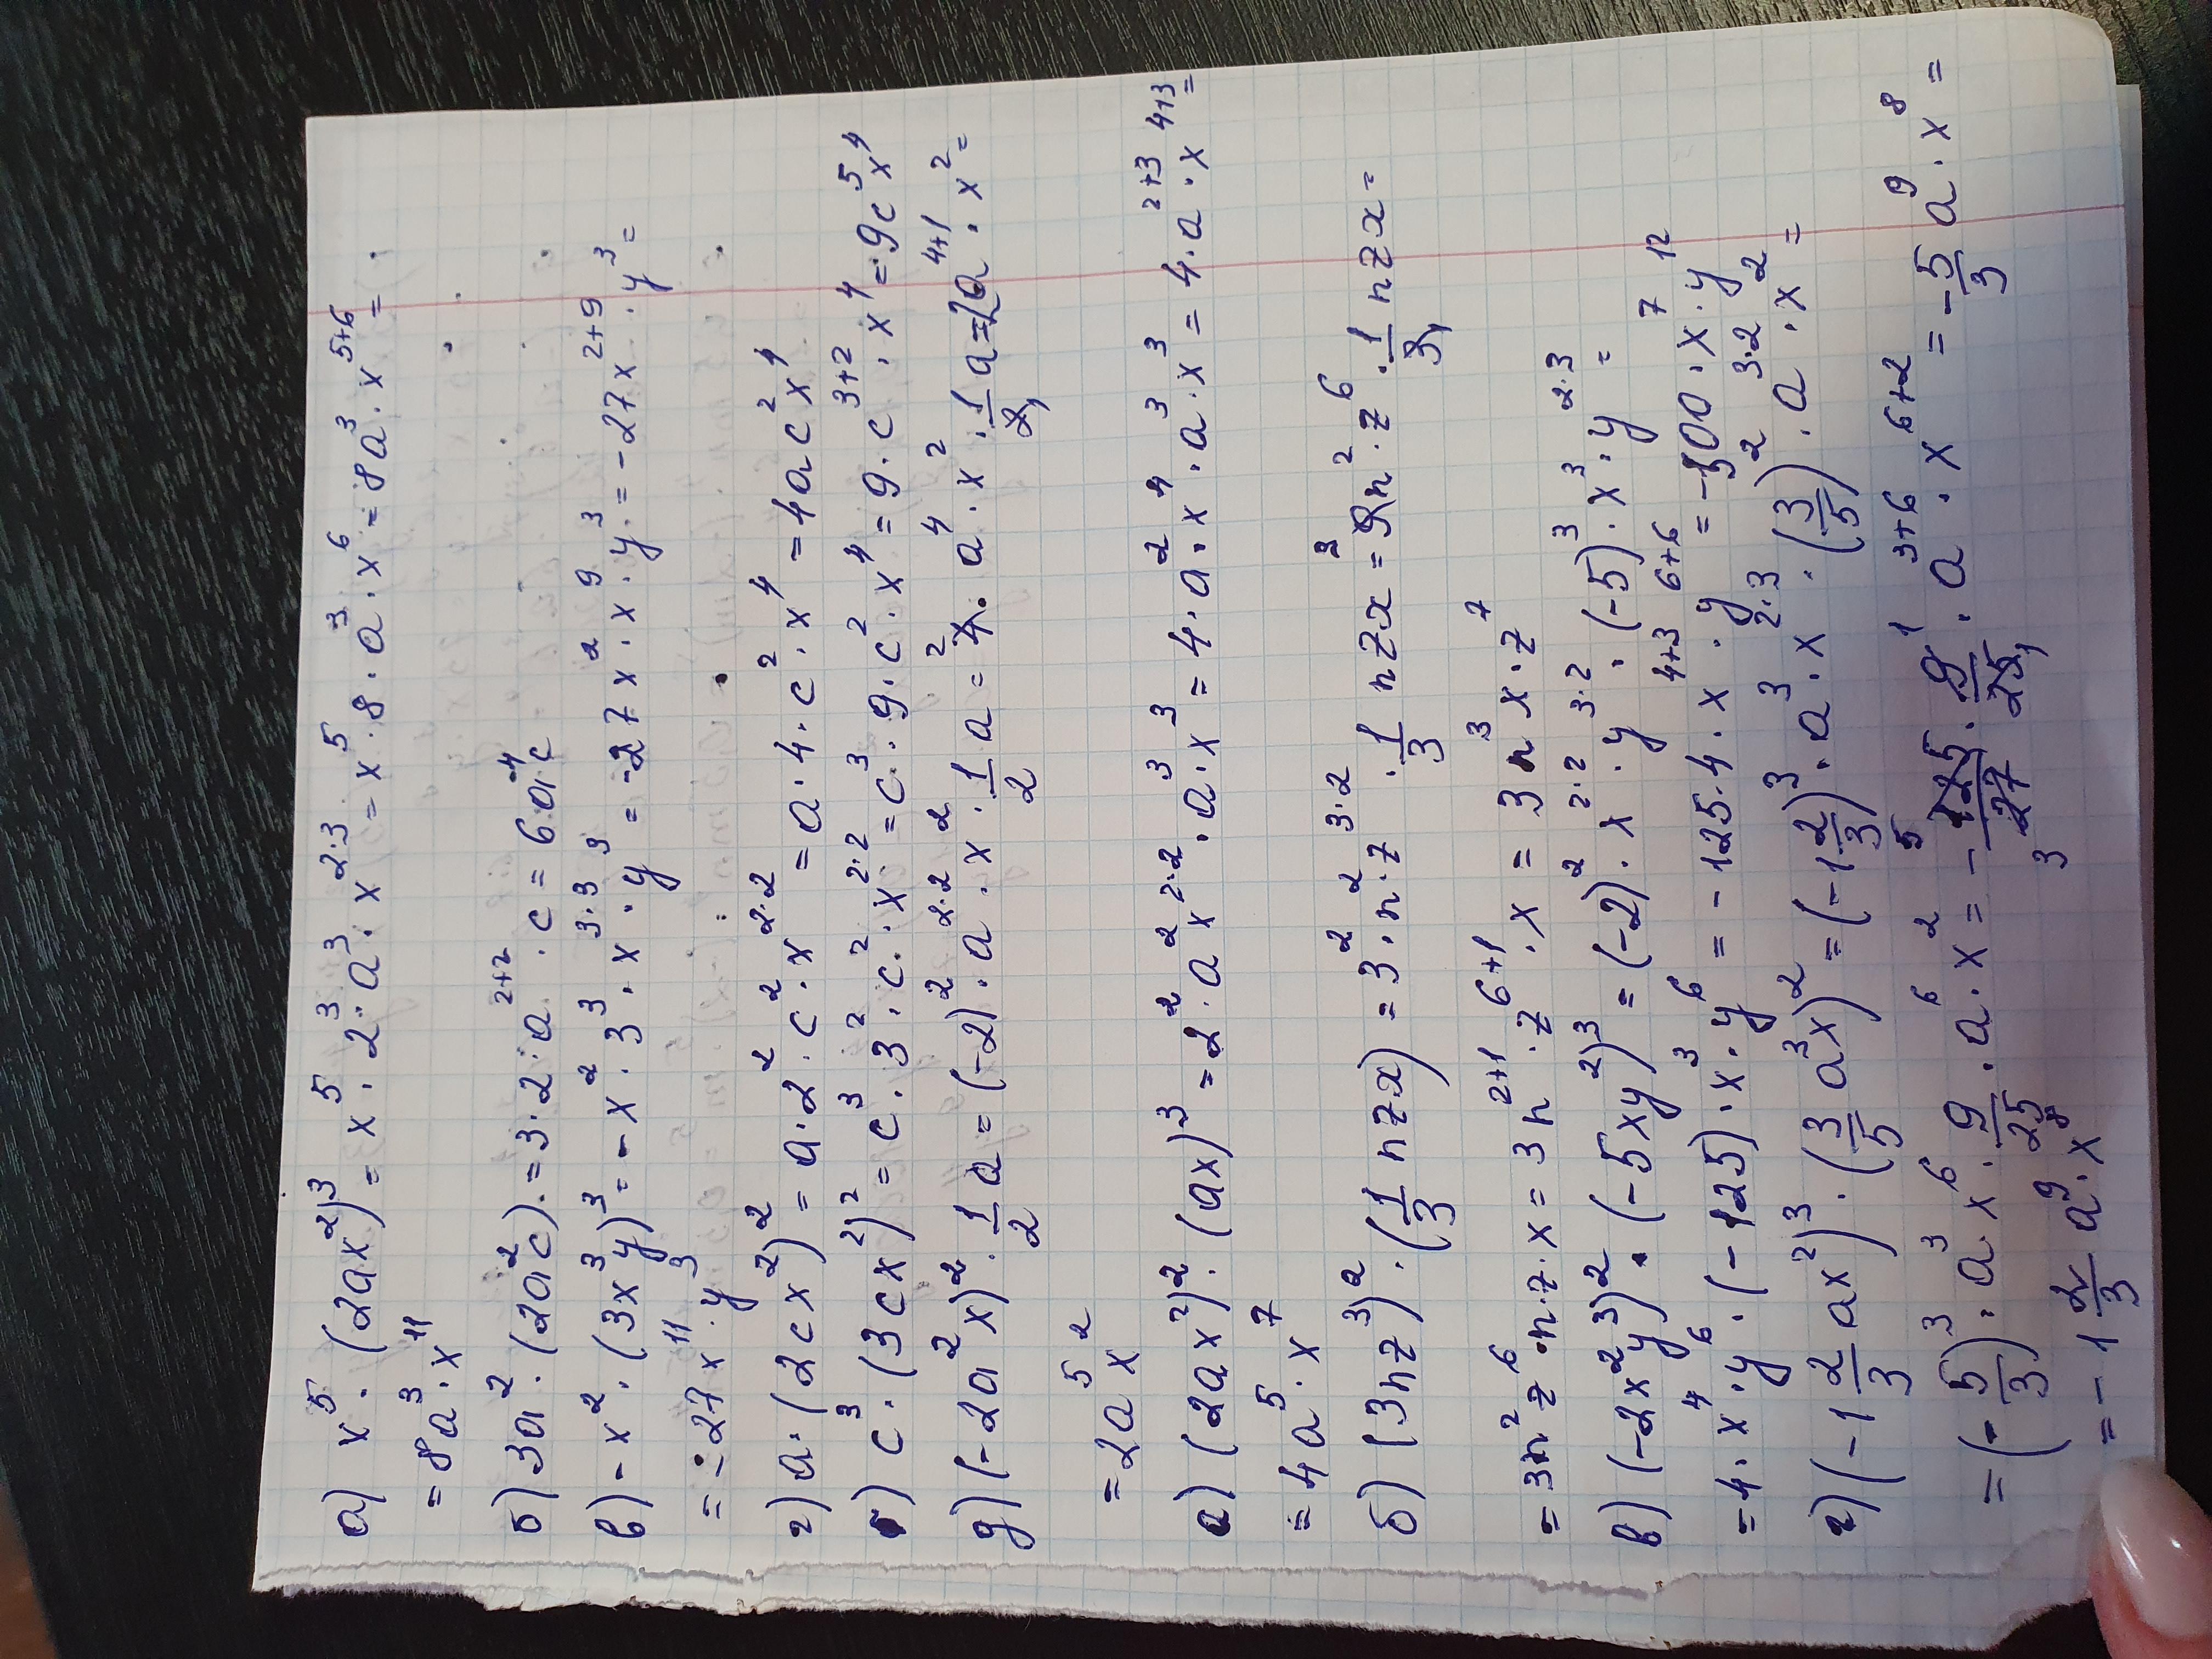 а) x⁵ · (2ax²)³ = x⁵ · 2³ · a³ · x²·³ = x⁵ · 8 · a³ · x⁶ = 8a³ · x⁵⁺⁶ =
= 8a³ · x¹¹
б) 3a² · (2a²c) = 3 · 2 · a²⁺² · c = 6 · a⁴ c
в) - x² · (3x³y)³ = - x² · 3³ · x³·³ · y³ = -27x² · x⁹ · y³ = -27x²⁺⁹ · y³ =
= -27x¹¹ · y³
г) a · (2cx²)² = a · 2² · c² · x²·² = a · 4 · c² · x⁴ = 4ac²x⁴
) c³ · (3cx²)² = c³ · 3² · c² · x²·² = c³ · 9 · c² · x⁴ = 9 · c³⁺² · x⁴ = 9c⁵x⁴
д) (-2a²x)² · 1/2 a = (-2)² · a²·² · x² · 1/2 a = 4 · a⁴ · x² · 1/2 a = 2a⁴⁺¹ · x² =
= 2a⁵x²
а) (2ax²)² · (ax)³ = 2² · a² x²·² · a³ · x³ = 4 · a² · x⁴ · a³ · x³ = 4 · a²⁺³ · x⁴⁺³ =
= 4a⁵ · x⁷
б) (3nz³)² · (1/3 nzx) = 3² · n² · z³·² · 1/3 nzx = 9n² · z⁶ · 1/3 nzx =
= 3n²z⁶ · n · z · x = 3n²⁺¹ · z⁶⁺¹ · x = 3n³x · z⁷
в) (-2x²y³)² · (-5xy²)³ = (-2)² · x²·² · y³·² · (-5)³ · x³ · y²·³ =
= 4 · x⁴ · y⁶ · (-125) · x³ · y⁶ = -125 · 4 · x⁴⁺³ · y⁶⁺⁶ = -500 · x⁷ · y¹²
г) (-1 2/3 ax²)³ · (3/5 a³x)² = (-1 2/3)³ · a³ · x²·³ · (3/5)² · a³·² · x² =
= (-5/3)³ · a³ x⁶ · 9/25 · a⁶ · x² = - 125/27 · 9/25 · a³⁺⁶ · x⁶⁺² = - 5/3 a⁹ · x⁸ =
= - 1 2/3 a⁹ · x⁸